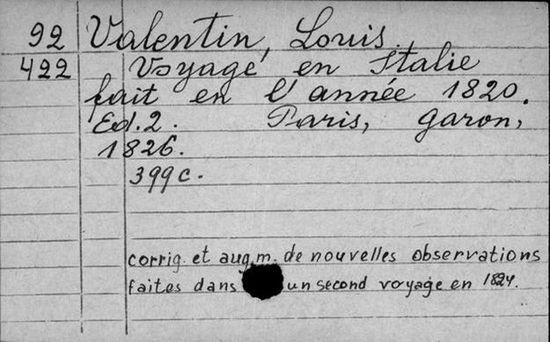 92 Valentin, Louis.
422 Voyage en Italie
fait en l'année 1820.
Ed. 2. Paris, Garon,
1826.
399 c.
corrig. et augm. de nouvelles observations
faites dans un second voyage en 1824.